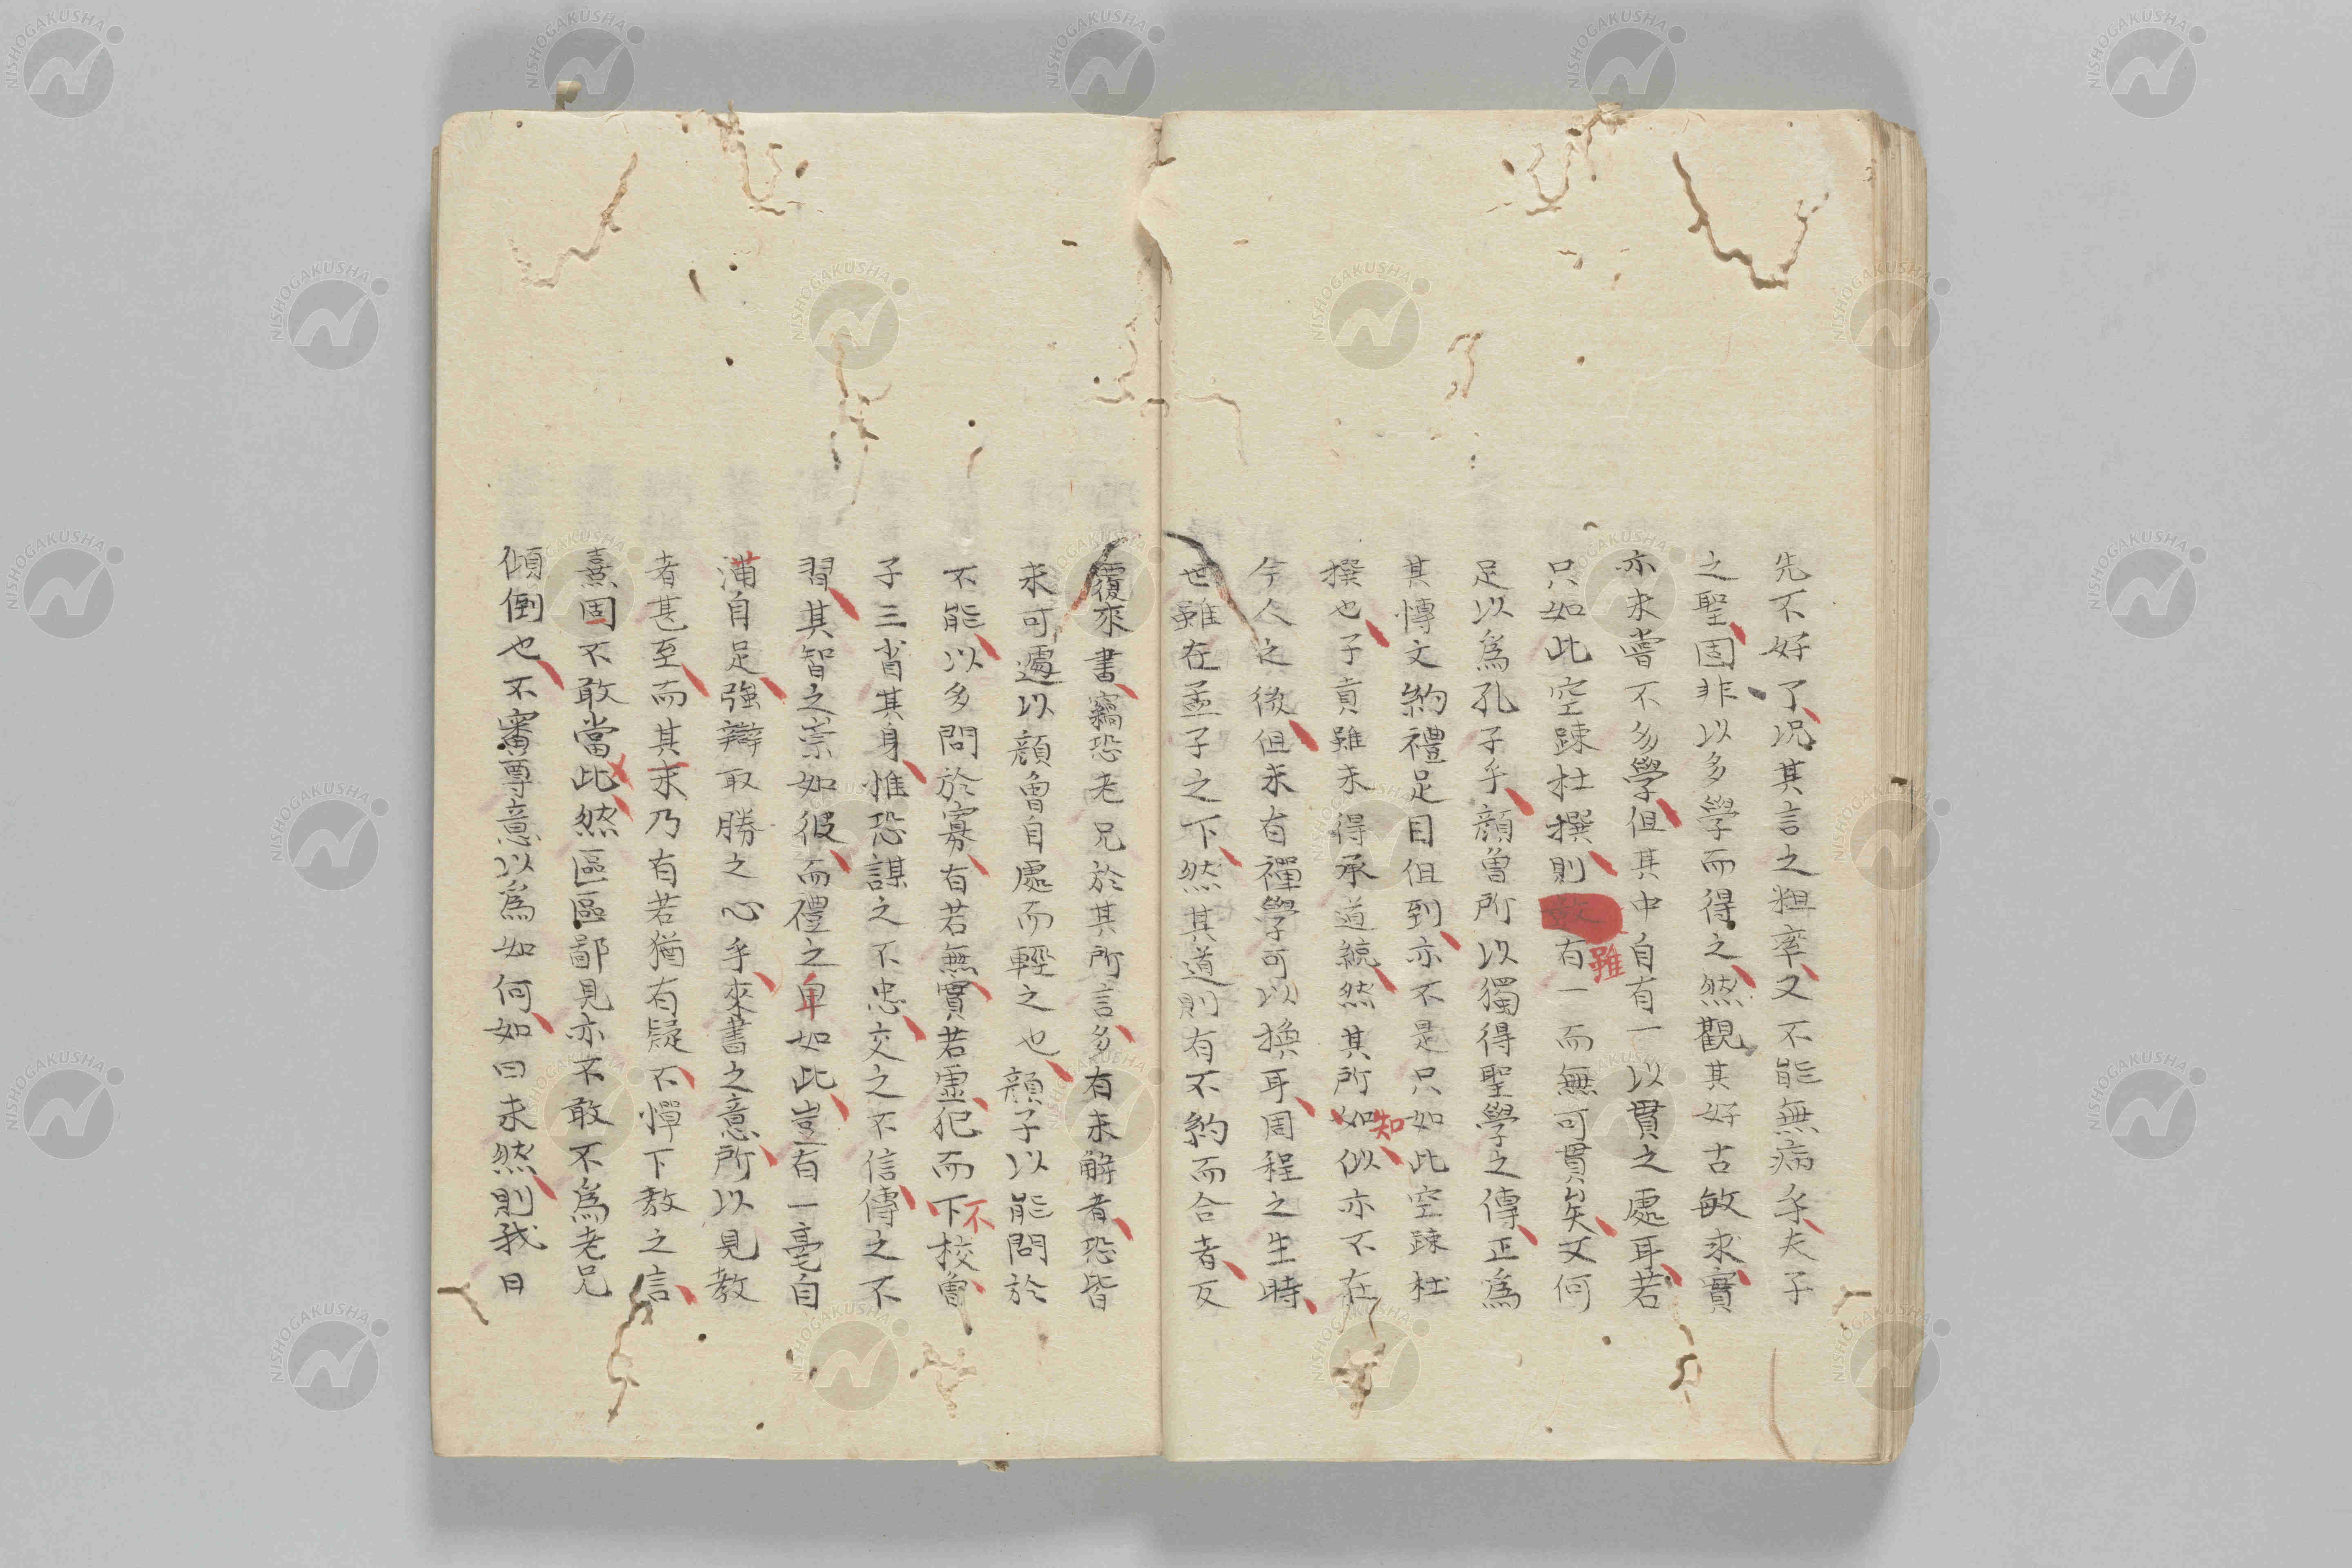 先不好了况其言之粗率又不能無病乎夫子
之聖固非以多學而得之然觀其好古敏求實
亦未嘗不多學但其中自有一以貫之處耳若
只如此空踈杜撰則雖有一而無可貫矣又何
足以爲孔子乎顔曾所以獨得聖學之傳正爲
其慱文約禮足目但到亦不是只如此空踈杜
撰也子貢雖未得承道統然其所如知似亦不在
今人之後但未有禪學可以換耳周程之生時
世雖在孟子之下然其道則有不約而合者反
覆來書竊恐老兄於其所言多有未解者恐皆
未可遽以顔曾自處而輕之也顔子以能問於
不能以多問於寡有若無實若虛犯而下不校曾
子三省其身惟恐謀之不忠交之不信傳之不
習其智之崇如彼而禮之卑如此豈有一毫自
滿自足強辯取勝之心乎來書之意所以見教
者甚至而其末乃有若猶有疑不憚下教之信
熹固不敢當此然區區鄙見亦不敢不爲老兄
傾倒也不審尊意以爲如何如曰未然則我日
NISHOGAKUSHA